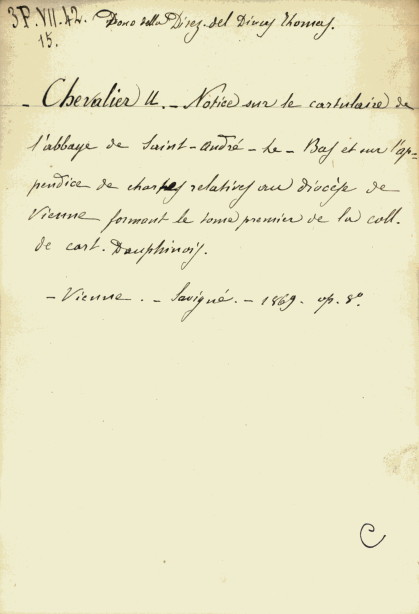 3P.VII.42. Dono della Direz. del Divus Thomas.
15.
- Chevalier U. - Notice sur le cartulaire de
l'abbaye de Saint-André-le-Bas et sur l'ap=
pendice de chartes relatives au diocèse de
Vienne formant le tome premier de la coll.
de cart. Dauphinois.
- Vienne. - Savigné. - 1869. op. 8°.
C